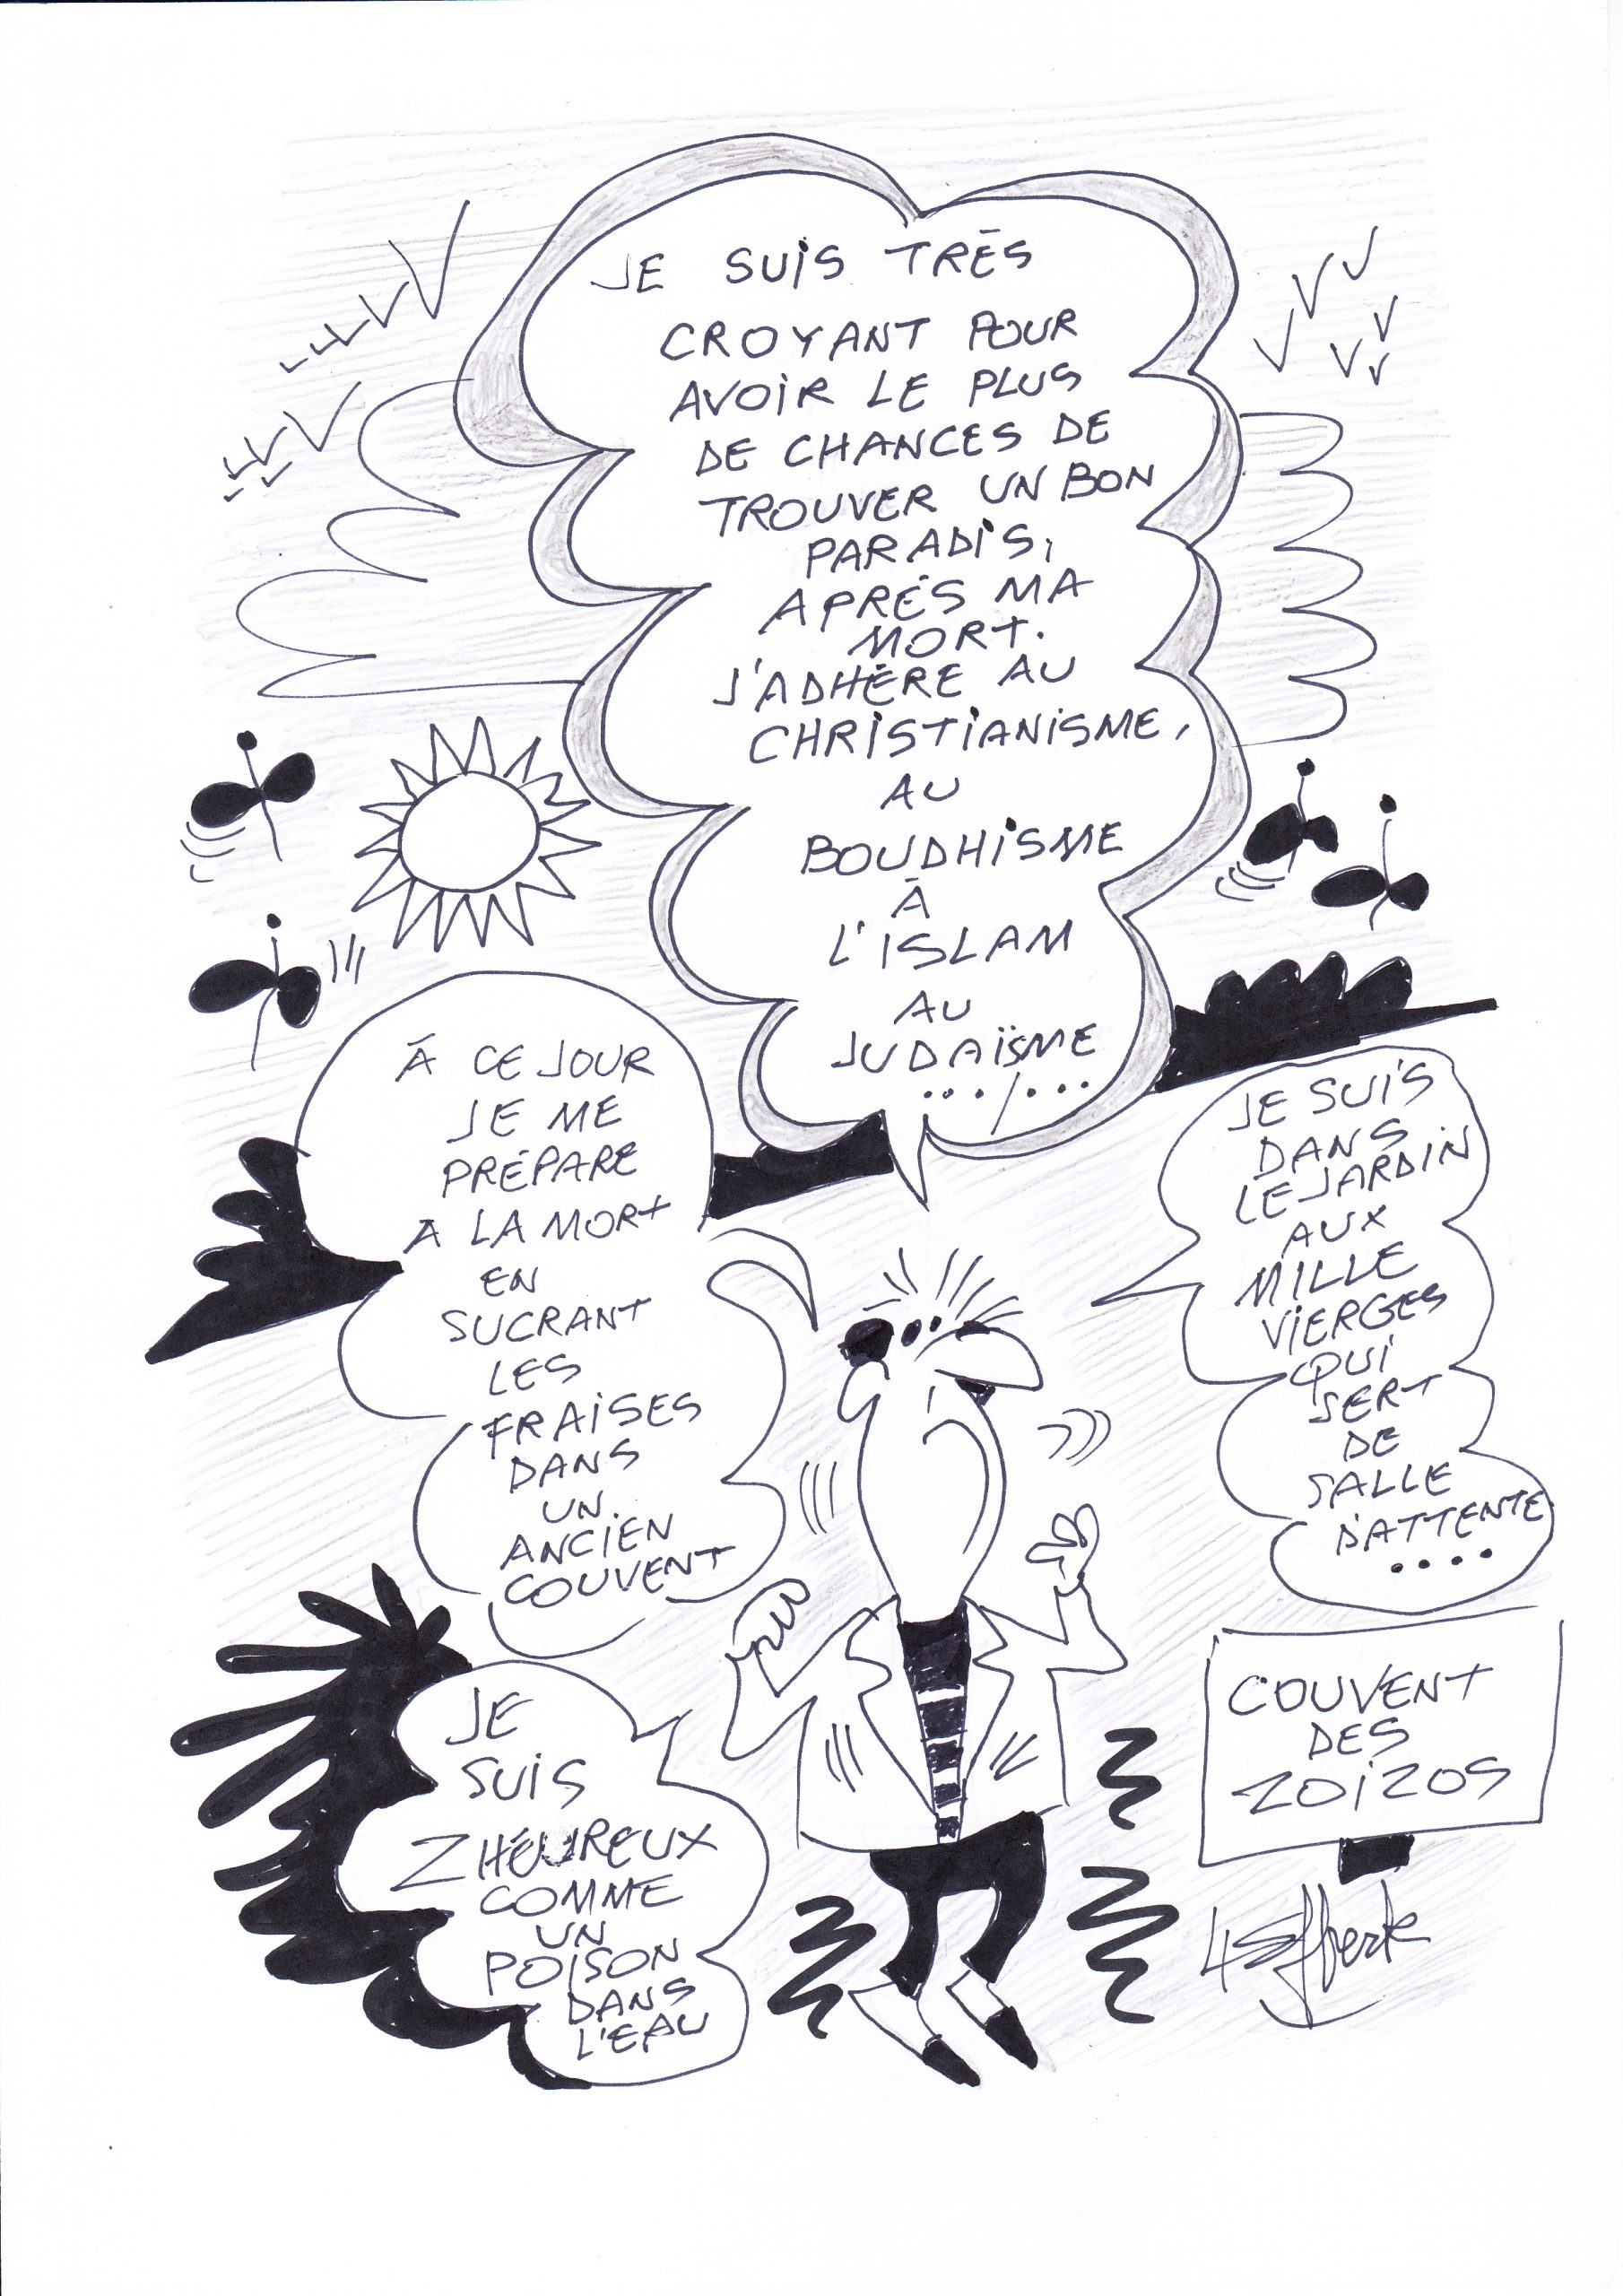 JE SUIS TRÈS
CROYANT POUR
AVOIR LE PLUS
DE CHANCES DE
TROUVER UN BON
PARADIS,
APRÈS MA
MORT.
J'ADHÈRE AU
CHRISTIANISME,
AU
BOUDHISME
À
L'ISLAM
AU
JUDAÏSME
.../...
À CE JOUR
JE ME
PRÉPARE
A LA MORT
EN
SUCRANT
LES
FRAISES
DANS
UN
ANCIEN
COUVENT
JE SUIS
DANS
LE JARDIN
AUX
MILLE
VIERGES
QUI
SERT
DE
SALLE
D'ATTENTE
....
JE
SUIS
ZHEUREUX
COMME
UN
POISON
DANS
L'EAU
COUVENT
DES
ZOIZOS